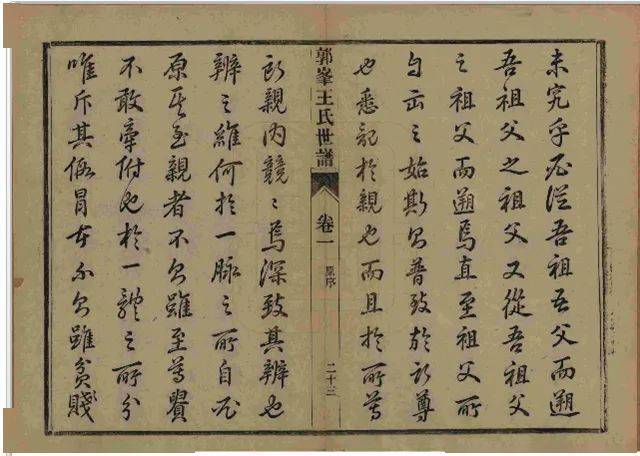 未究乎必從吾祖吾父而遡
吾祖父之祖父又從吾祖父
之祖父而遡焉直至祖父所
自出之始斯以普致於所尊
也悉記於親也而且於所尊
郭峯王氏世譜 卷一 原序 二十三
所親內競〻焉深致其辨也
辨之維何於一脉之所自必
原至親者不以雖至尊貴
不敢牽附也於一體之所分
唯斥其冒不以雖貧賤